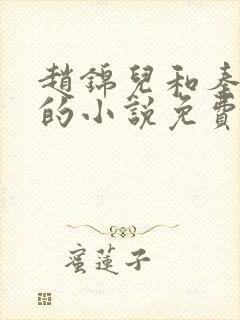 趙錦兒和秦
的小說免費
蜜蓮子